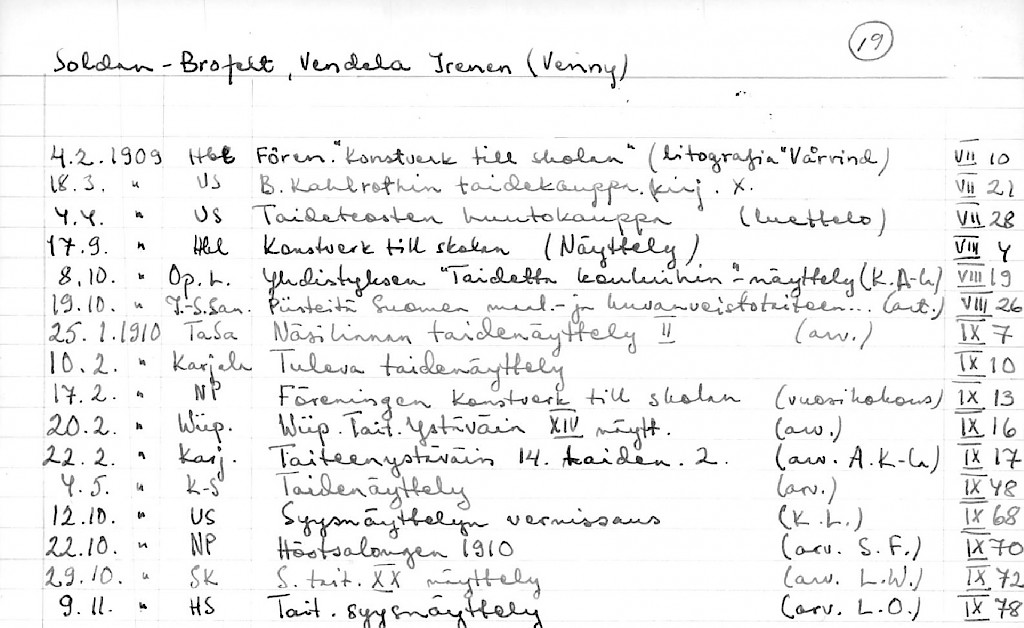 19
Soldan-Brofelt, Vendela Irenen (Venny)
4.2.1909 Hbl Fören. "Konstverk till skolan" (litografia "Vårvind) VII 10
18.3. " US B. Kahlrothin taidekaupp. kirj. X. VII 21
4.4. " US Taideteosten huutokauppa (luettelo) VII 28
17.9. " Hbl Konstverk till skolan (Näyttely) VIII 4
8.10. " Op.L. Yhdistyksen "Taidetta kouluihin"-näyttely (K.A-la) VIII 19
19.10. " I.-S.San. Piirteitä Suomen maal.- ja kuvanveistotaiteen... (art.) VIII 26
25.1.1910 TaSa Näsilinnan taidenäyttely II (arv.) IX 7
10.2. " Karjala Tuleva taidenäyttely IX 10
17.2. " NP Föreningen konstverk till skolan (vuosikokous) IX 13
20.2. " Wiip. Wiip. Tait. Ystäväin XIV näytt. (arv.) IX 16
22.2. " Karj. Taiteenystäväin 14. taiden. 2. (arv. A.K-la) IX 17
4.5. " K-S Taidenäyttely (arv.) IX 48
12.10. " US Syysnäyttelyn vernissaus (K.L.) IX 68
22.10. " NP Höstsalongen 1910 (arv. S.F.) IX 70
29.10. " SK S. tait. XX näyttely (arv. L.W.) IX 72
9.11. " HS Tait. syysnäyttely (arv. L.O.) IX 78